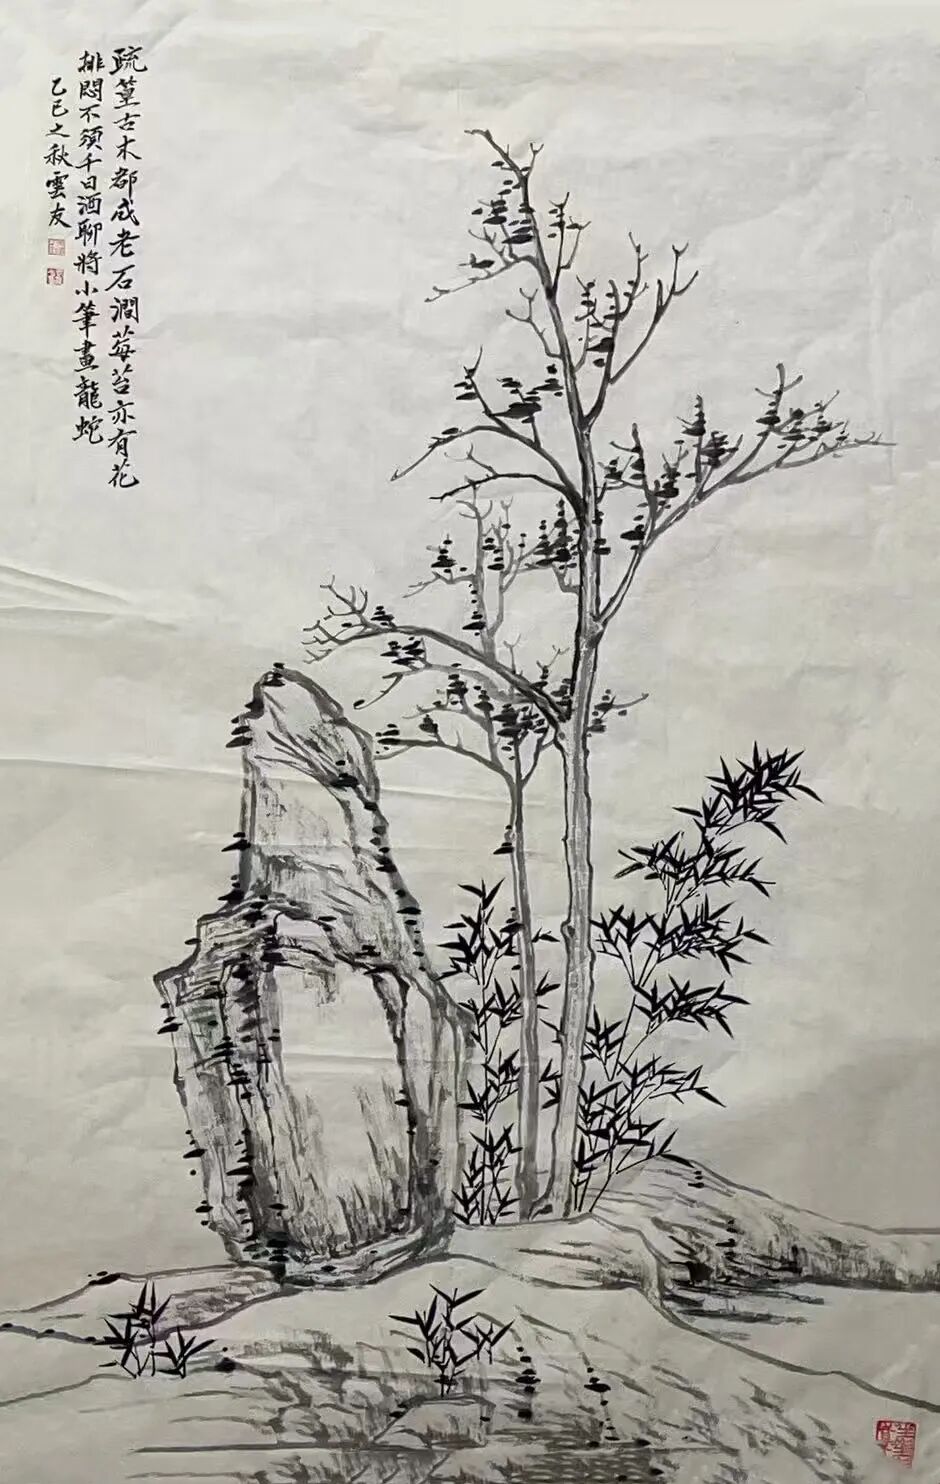 疏篁古木都成老石澗莓苔亦有花
排悶不須千日酒聊將小筆畫龍蛇
乙巳之秋雲友